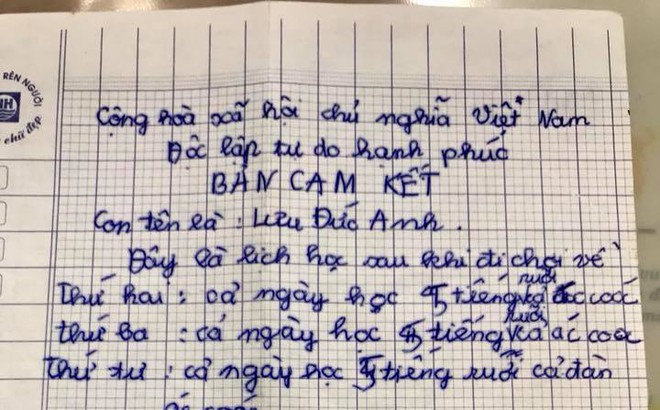 RÈN NGƯỜI
NH
chữ đẹp
Cộng hoà xã hội chủ nghĩa Việt Nam
Độc lập tự do hạnh phúc
BẢN CAM KẾT
Con tên là : Lưu Đức Anh.
Đây là lich học sau khi đi chơi về
ruỡi
thứ hai : cả ngày học 5 tiếng cả coóc
ruỡi
thứ ba : cả ngày học 5 tiếng cả ác coóc
thứ tư : cả ngày học 5 tiếng ruỡi cả đàn